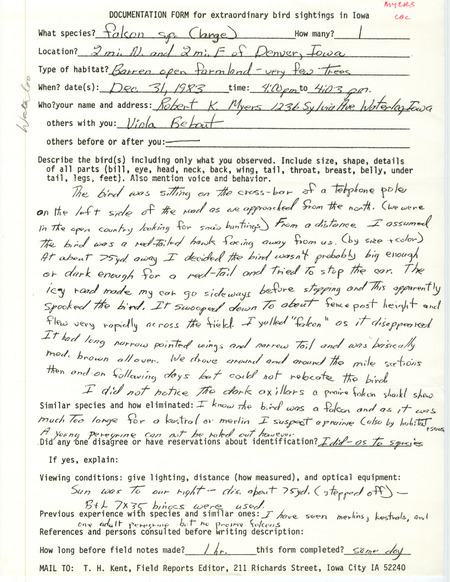 MYERS
CBC
Waterloo
DOCUMENTATION FORM for extraordinary bird sightings in Iowa
What species? falcon sp. (large) How many? 1
Location? 2 mi. N. and 2 mi. E of Denver, Iowa
Type of habitat? Barren open farmland - very few trees
When? date(s): Dec. 31, 1983 time: 4:00 pm to 4:03 pm.
Who?your name and address: Robert K. Myers 1236 Sylvia Ave Waterloo, Iowa
others with you: Viola
others before or after you:
Describe the bird(s) including only what you observed. Include size, shape, details
of all parts (bill, eye, head, neck, back, wing, tail, throat, breast, belly, under
tail, legs, feet). Also mention voice and behavior.
The bird was sitting on the cross-bar of a telephone pole
on the left side of the road as we approached from the north. (We were
in the open country looking for snow buntings) From a distance I assumed
the bird was a red-tailed hawk facing away from us. (by size + color)
At about 75yd away I decided the bird wasn't probably big enough
or dark enough for a red-tail and tried to stop the car. The
icy road made my car go sideways before stopping and this apparently
spooked the bird. It swooped down to about fence post height and
flew very rapidly across the field. I yelled "falcon" as it disappeared
It had long narrow pointed wings and narrow tail and was basically
mod. brown all over. We drove around and around the mile sections
then and on following days but could not relocate the bird
I did not notice the dark axillars a prairie falcon should show
Similar species and how eliminated: I know the bird was a falcon and as it was
much too large for a kestral or merlin I suspect a prairie (also by habitat
A young peregrine can not be ruled out however.
Did any one disagree or have reservations about identification? I did - as to species
If yes, explain:
Viewing conditions: give lighting, distance (how measured), and optical equipment:
Sun was to our right - dis. about 75yd. (stepped off) -
B+L 7X35 binocs were used.
Previous experience with species and similar ones: I have seen merlins, kestrals, and
one adult peregrine but no prairie falcons
References and persons consulted before writing description:
How long before field notes made? 1 hr. this form completed? same day
MAIL TO: T. H. Kent, Field Reports Editor, 211 Richards Street, Iowa City IA 52240